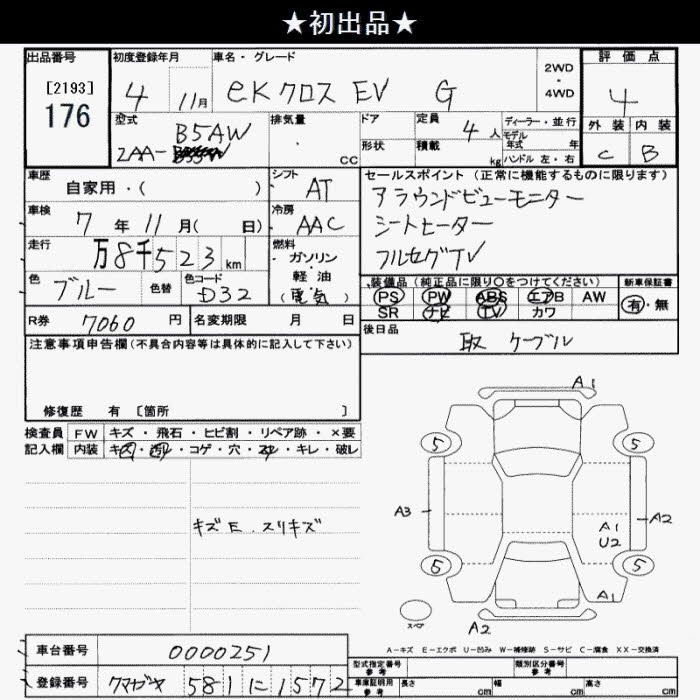 ★初出品★
出品番号 初度登録年月 車名・グレード 2WD・4WD 評価点
[2193]
176
4 11月 eKクロス EV G 4
型式 排気量 ドア 定員 ディーラー・並行 外装 内装
B5AW 4人 モデル年式 年
2AA- CC 形状 積載 kg ハンドル 左・右 C B
車歴 シフト セールスポイント (正常に機能するものに限ります)
自家用・( ) AT アラウンドビューモニター
車検 冷房 シートヒーター
7年11月( 日) AAC フルセグTV
走行 燃料
万8千523km ・ガソリン
・軽・油
色 色替 色コード (電気) 装備品(純正品に限り○をつけてください) 新車保証書
ブルー D32 PS PW ABS エアB AW 有・無
SR ナビ TV カワ
R券 7060円 名変期限 月 日 後日品
取 ケーブル
注意事項申告欄(不具合内容等は具体的に記入して下さい)
修復歴 有 [箇所 ]
検査員 FW キズ・飛石・ヒビ割・リペア跡・×要
記入欄 内装 ・コゲ・穴・ ・キレ・破レ
キズE スリキズ
A1
5 5
A3 A2
A1
U2
5 5
A1
スペア
A2
A-キズ E-エクボ U-凹み W-補修跡 S-サビ C-腐食 XX-交換済
車台番号 0000251
型式指定番号 参考 類別区分番号 参考
登録番号 クマガヤ 581 に 1572
車庫証明用 参考 長さ cm 幅 cm 高さ cm